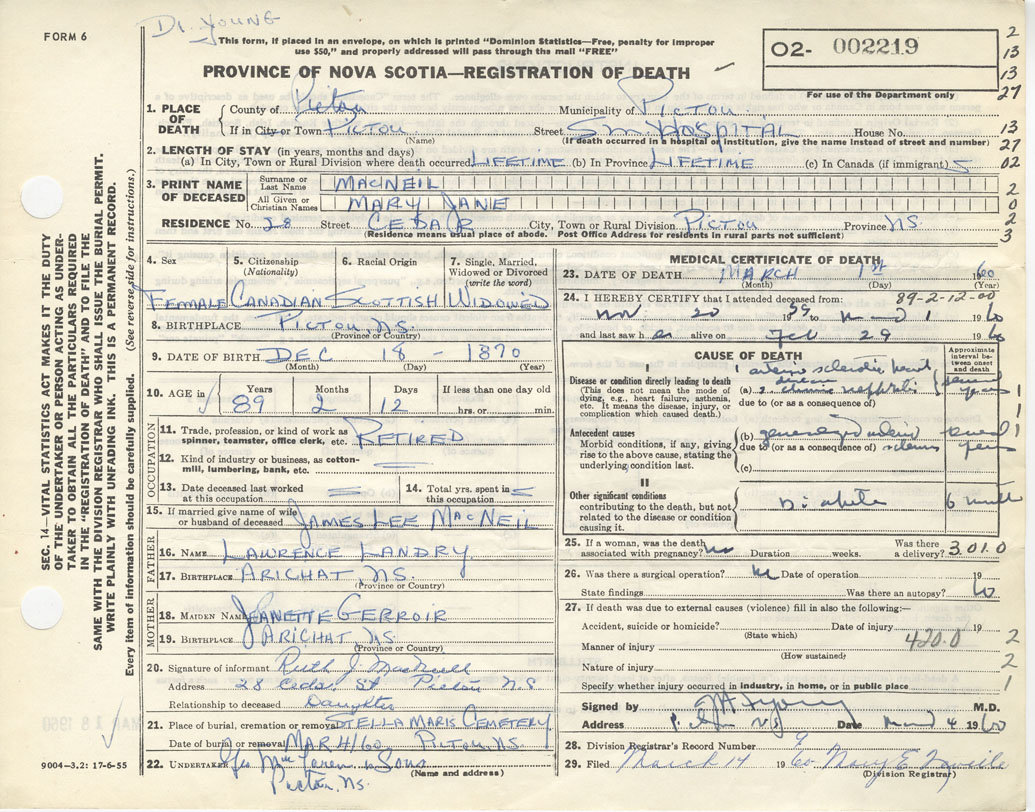 Dr. YOUNG
FORM 6
This form, if placed in an envelope, on which is printed "Dominion Statistics—Free, penalty for improper
use $50," and properly addressed will pass through the mail "FREE"
02- 002219
For use of the Department only
2
13
13
27
PROVINCE OF NOVA SCOTIA—REGISTRATION OF DEATH
1. PLACE OF DEATH
County of Pictou Municipality of PICTOU
If in City or Town PICTOU (Name) Street Sm HOSPITAL House No. 13
(If death occurred in a hospital or institution, give the name instead of street and number) 27
2. LENGTH OF STAY (in years, months and days)
(a) In City, Town or Rural Division where death occurred LIFETIME (b) In Province LIFETIME (c) In Canada (if immigrant) 02
3. PRINT NAME OF DECEASED
Surname or Last Name MACNEIL 2
All Given or Christian Names MARY JANE 0
RESIDENCE No. 28 Street CEDAR City, Town or Rural Division PICTOU Province NS. 2
(Residence means usual place of abode. Post Office Address for residents in rural parts not sufficient) 3
4. Sex FEMALE
5. Citizenship (Nationality) CANADIAN
6. Racial Origin SCOTTISH
7. Single, Married, Widowed or Divorced (write the word) WIDOWED
8. BIRTHPLACE PICTOU, NS.
(Province or Country)
9. DATE OF BIRTH DEC 18 - 1870
(Month) (Day) (Year)
10. AGE in Years 89 Months 2 Days 12 If less than one day old
hrs. or min.
OCCUPATION
11. Trade, profession, or kind of work as spinner, teamster, office clerk, etc. RETIRED
12. Kind of industry or business, as cotton-mill, lumbering, bank, etc.
13. Date deceased last worked at this occupation
14. Total yrs. spent in this occupation
15. If married give name of wife or husband of deceased JAMES LEE MACNEIL
FATHER
16. NAME LAWRENCE LANDRY
17. BIRTHPLACE ARICHAT, NS.
(Province or Country)
MOTHER
18. MAIDEN NAME JEANETTE GERROIR
19. BIRTHPLACE ARICHAT NS.
(Province or Country)
20. Signature of informant Ruth J. MacNeil
Address 28 Cedar St Pictou N.S
Relationship to deceased Daughter
21. Place of burial, cremation or removal STELLA MARIS CEMETERY
Date of burial or removal MAR 4/60 PICTOU, NS.
22. UNDERTAKER Sons
(Name and address)
Pictou, NS.
MEDICAL CERTIFICATE OF DEATH
23. DATE OF DEATH MARCH 1st 1960
(Month) (Day) (Year)
24. I HEREBY CERTIFY that I attended deceased from: 89-2-12-00
Nov. 20 1959 to 1 1960
and last saw h er alive on Feb 29 1960
CAUSE OF DEATH
Approximate interval between onset and death
I
Disease or condition directly leading to death
(This does not mean the mode of dying, e.g., heart failure, asthenia, etc. It means the disease, injury, or complication which caused death.)
1 arterio sclerotic heart disease
(a) 2 chronic nephritis several years 1
due to (or as a consequence of) 1
Antecedent causes
Morbid conditions, if any, giving rise to the above cause, stating the underlying condition last.
(b) generalized arterio several 1
due to (or as a consequence of) sclerosis years
(c)
II
Other significant conditions
contributing to the death, but not related to the disease or condition causing it.
Diabetes 6
25. If a woman, was the death associated with pregnancy? no Duration weeks. Was there a delivery? 3.01.0
26. Was there a surgical operation? no Date of operation 19
State findings Was there an autopsy?
27. If death was due to external causes (violence) fill in also the following:—
Accident, suicide or homicide? Date of injury 19 2
(State which)
Manner of injury 420.0
(How sustained?)
Nature of injury 2
Specify whether injury occurred in industry, in home, or in public place 1
Signed by M.D.
Address N.S Date 4 1960
28. Division Registrar's Record Number 9
29. Filed March 14 1960 Mary E.
(Division Registrar)
9004-3.2: 17-6-55
SEC. 14—VITAL STATISTICS ACT MAKES IT THE DUTY
OF THE UNDERTAKER OR PERSON ACTING AS UNDER-
TAKER TO OBTAIN ALL THE PARTICULARS REQUIRED
IN THE "REGISTRATION OF DEATH" AND TO FILE THE
SAME WITH THE DIVISION REGISTRAR WHO SHALL ISSUE THE BURIAL PERMIT.
WRITE PLAINLY WITH UNFADING INK. THIS IS A PERMANENT RECORD.
Every item of information should be carefully supplied. (See reverse side for instructions.)